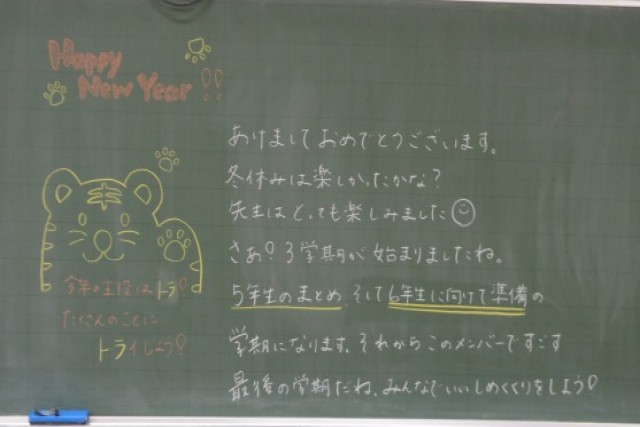 Happy
New Year!!
今年の主役はトラ!
たくさんのことに
トライしよう!
あけましておめでとうございます。
冬休みは楽しかったかな?
先生はとっても楽しみました
さあ!3学期が始まりましたね。
5年生のまとめ、そして6年生に向けて準備の
学期になります。それからこのメンバーですごす
最後の学期だね。みんなでいいしめくくりをしよう!